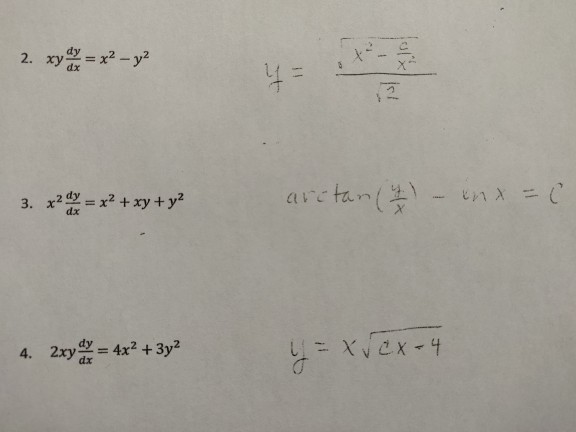 2. xy dy/dx = x² − y² y = √(x² − c/x²)/√2
3. x² dy/dx = x² + xy + y² arctan(y/x) − ln x = C
4. 2xy dy/dx = 4x² + 3y² y = x√(cx − 4)